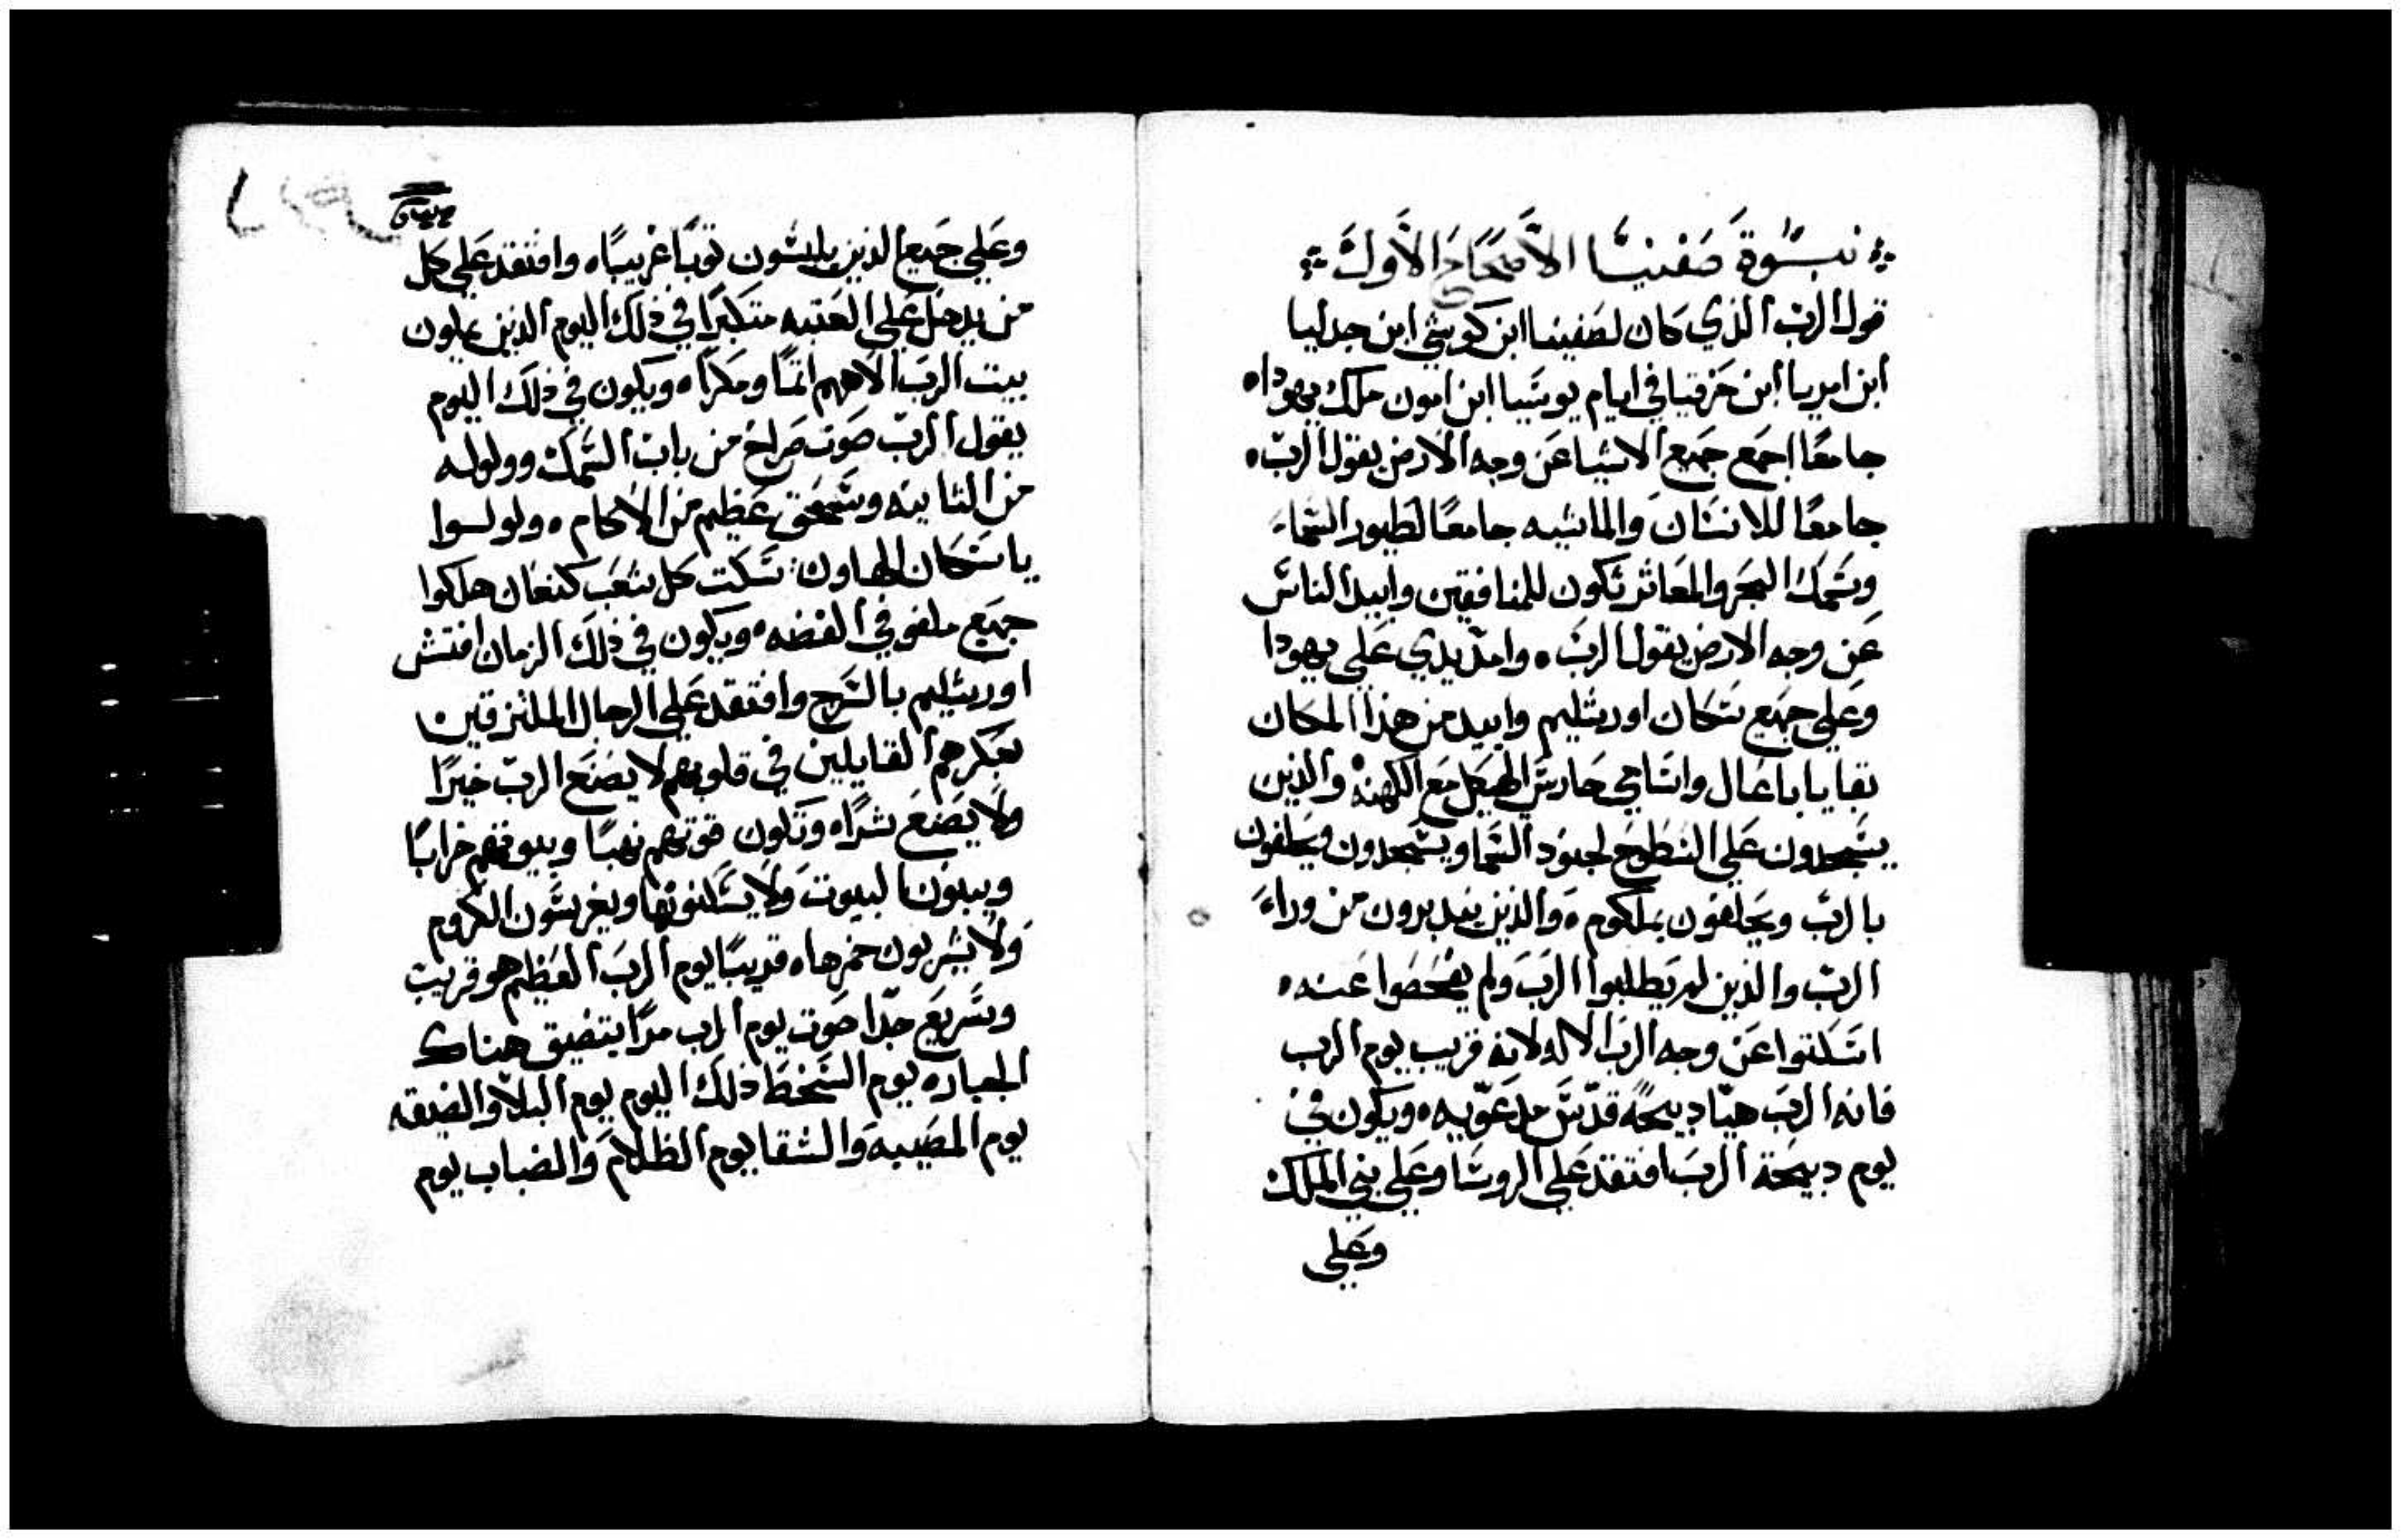 نبوّة صفنيا الأصحاح الأول
قول الرب الذي كان لصفينيا ابن كوشي ابن جدليا
ابن امريا ابن حزقيا في ايام يوشيا ابن امون ملك يهودا ه
جامعًا اجمع جميع الاشيا عن وجه الارض يقول الرب ه
جامعًا للانسان والماشيه جامعًا لطيور السماء
وسمك البحر والمعاثر تكون للمنافقين وابيد الناس
عن وجه الارض يقول الرب ه وامد يدي على يهودا
وعلي جميع سكان اورشليم وابيد من هذا المكان
بقايا باعال واسامي حارس الهيكل مع الكهنه والذين
يسجدون على السطوح لجنود السما ويسجدون ويحلفون
بالرب ويحلفون بملكوم ه والذين يدبرون من وراء
الرب والذين لم يطلبوا الرب ولم يفحصوا عنه ه
اسكتوا عن وجه الرب الاله لانه قريب يوم الرب
فانه الرب هيّا دبيحةً قدّس مدعوّيه ه ويكون في
يوم دبيحة الرب افتقد علي الروسا وعلي بني الملك
وعلي
وعلي جميع الذين يلبسون ثوبًا غريبًا ه وافتقد علي كل
من يدخل علي العتبه متكبرًا في ذلك اليوم الذين يملون
بيت الرب الاههم اثمًا ومكرًا ه ويكون في ذلك اليوم
يقول الرب صوت صراخ من باب السمك وولوله
من الثانيه وسحق عظيم من الاكام ه ولولوا
يا سكان الهاون سكت كل شعب كنعان هلكوا
جميع ملفوفي الفضه ه ويكون في ذلك الزمان افتش
اورشليم بالسرج وافتقد علي الرجال الملتزقين
بعكرهم القايلين في قلوبهم لا يصنع الرب خيرًا
ولا يصنع شرًا ه وتكون قوتهم نهبًا وبيوتهم خرابًا
ويبنون البيوت ولا يسكنونها ويغرسون الكروم
ولا يشربون خمرها ه قريبًا يوم الرب العظيم هو قريب
وسريع جدًا صوت يوم الرب مرًا يتضيق هناك
الجباره يوم السخط ذلك اليوم يوم البلا والضيقه
يوم المصيبه والشقا يوم الظلام والضباب يوم